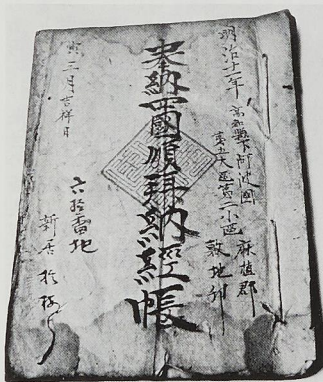 明治十一年
高知縣下阿波國 麻植郡
大區 小區 敷地村
奉納四國順拜納經帳
寅三月吉祥日
六拾番地
新居